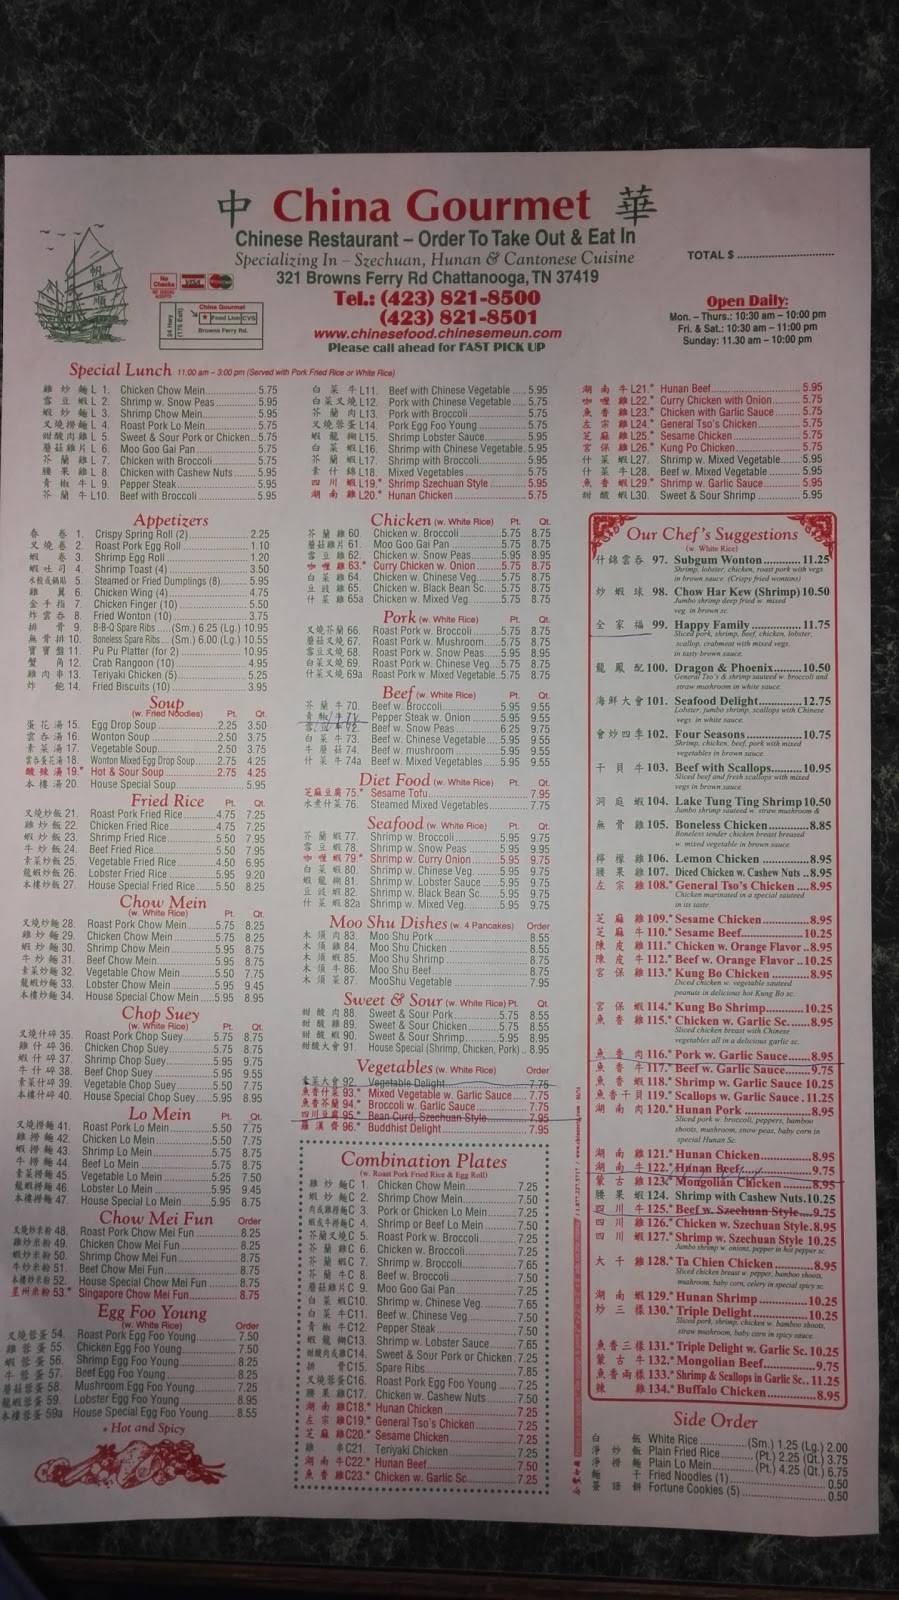 中 China Gourmet 華
Chinese Restaurant – Order To Take Out & Eat In
Specializing In – Szechuan, Hunan & Cantonese Cuisine
321 Browns Ferry Rd Chattanooga, TN 37419
Tel.: (423) 821-8500
(423) 821-8501
www.chinesefood.chinesemeun.com
Please call ahead for FAST PICK UP
TOTAL $
Open Daily:
Mon. – Thurs.: 10:30 am – 10:00 pm
Fri. & Sat.: 10:30 am – 11:00 pm
Sunday: 11.30 am – 10:00 pm
No Checks
VISA
China Gourmet
Food Lion CVS
Browns Ferry Rd.
24 Hwy (I75 Exit)
Special Lunch 11:00 am – 3:00 pm (Served with Pork Fried Rice or White Rice)
雞炒麵 L 1. Chicken Chow Mein 5.75
雪豆蝦 L 2. Shrimp w. Snow Peas 5.95
蝦炒麵 L 3. Shrimp Chow Mein 5.95
叉燒撈麵 L 4. Roast Pork Lo Mein 5.75
甜酸肉雞 L 5. Sweet & Sour Pork or Chicken 5.75
蘑菇雞片 L 6. Moo Goo Gai Pan 5.75
芥蘭雞 L 7. Chicken with Broccoli 5.75
腰果雞 L 8. Chicken with Cashew Nuts 5.95
青椒牛 L 9. Pepper Steak 5.95
芥蘭牛 L10. Beef with Broccoli 5.95
白菜牛 L11. Beef with Chinese Vegetable 5.95
白菜叉燒 L12. Pork with Chinese Vegetable 5.75
芥蘭肉 L13. Pork with Broccoli 5.75
叉燒蓉蛋 L14. Pork Egg Foo Young 5.75
蝦龍糊 L15. Shrimp Lobster Sauce 5.95
白菜蝦 L16. Shrimp with Chinese Vegetable 5.95
芥蘭蝦 L17. Shrimp with Broccoli 5.95
素什錦 L18. Mixed Vegetables 5.75
四川蝦 L19.* Shrimp Szechuan Style 5.95
湖南雞 L20.* Hunan Chicken 5.75
湖南牛 L21.* Hunan Beef 5.95
咖喱雞 L22.* Curry Chicken with Onion 5.75
魚香雞 L23.* Chicken with Garlic Sauce 5.75
左宗雞 L24.* General Tso's Chicken 5.75
芝麻雞 L25.* Sesame Chicken 5.75
宮保雞 L26.* Kung Po Chicken 5.75
什菜蝦 L27. Shrimp w. Mixed Vegetable 5.95
什菜牛 L28. Beef w. Mixed Vegetable 5.95
魚香蝦 L29.* Shrimp w. Garlic Sauce 5.95
甜酸蝦 L30. Sweet & Sour Shrimp 5.95
Appetizers
春卷 1. Crispy Spring Roll (2) 2.25
叉燒卷 2. Roast Pork Egg Roll 1.10
蝦卷 3. Shrimp Egg Roll 1.20
蝦吐司 4. Shrimp Toast (4) 3.50
水餃或鍋貼 5. Steamed or Fried Dumplings (8) 5.95
雞翼 6. Chicken Wing (4) 4.75
金手指 7. Chicken Finger (10) 5.50
炸雲吞 8. Fried Wonton (10) 3.75
排骨 9. B-B-Q Spare Ribs (Sm.) 6.25 (Lg.) 10.95
無骨排 10. Boneless Spare Ribs (Sm.) 6.00 (Lg.) 10.55
寶寶盤 11. Pu Pu Platter (for 2) 10.95
蟹角 12. Crab Rangoon (10) 4.95
雞肉串 13. Teriyaki Chicken (5) 5.25
炸飽 14. Fried Biscuits (10) 3.95
Soup
(w. Fried Noodles) Pt. Qt.
蛋花湯 15. Egg Drop Soup 2.25 3.50
雲吞湯 16. Wonton Soup 2.50 3.75
素菜湯 17. Vegetable Soup 2.50 3.75
雲吞蛋花湯 18. Wonton Mixed Egg Drop Soup 2.75 4.25
酸辣湯 19.* Hot & Sour Soup 2.75 4.25
本樓湯 20. House Special Soup 5.95
Fried Rice Pt. Qt.
叉燒炒飯 21. Roast Pork Fried Rice 4.75 7.25
雞炒飯 22. Chicken Fried Rice 4.75 7.25
蝦炒飯 23. Shrimp Fried Rice 5.50 7.95
牛炒飯 24. Beef Fried Rice 5.50 7.95
素菜炒飯 25. Vegetable Fried Rice 4.50 6.95
龍蝦炒飯 26. Lobster Fried Rice 5.95 9.20
本樓炒飯 27. House Special Fried Rice 5.50 8.25
Chow Mein
(w. White Rice) Pt. Qt.
叉燒炒麵 28. Roast Pork Chow Mein 5.75 8.25
雞炒麵 29. Chicken Chow Mein 5.75 8.25
蝦炒麵 30. Shrimp Chow Mein 5.95 8.75
牛炒麵 31. Beef Chow Mein 5.95 8.75
素菜炒麵 32. Vegetable Chow Mein 5.50 7.75
龍蝦炒麵 33. Lobster Chow Mein 5.95 9.45
本樓炒麵 34. House Special Chow Mein 5.95 8.95
Chop Suey
(w. White Rice) Pt. Qt.
叉燒什碎 35. Roast Pork Chop Suey 5.75 8.75
雞什碎 36. Chicken Chop Suey 5.75 8.75
蝦什碎 37. Shrimp Chop Suey 5.95 9.75
牛什碎 38. Beef Chop Suey 5.95 9.55
素菜什碎 39. Vegetable Chop Suey 5.75 7.75
本樓什碎 40. House Special Chop Suey 5.95 8.95
Lo Mein Pt. Qt.
叉燒撈麵 41. Roast Pork Lo Mein 5.50 7.75
雞撈麵 42. Chicken Lo Mein 5.50 7.75
蝦撈麵 43. Shrimp Lo Mein 5.75 8.75
牛撈麵 44. Beef Lo Mein 5.75 8.75
素菜撈麵 45. Vegetable Lo Mein 5.25 7.50
龍蝦撈麵 46. Lobster Lo Mein 5.95 9.45
本樓撈麵 47. House Special Lo Mein 5.95 8.75
Chow Mei Fun Order
叉燒炒米粉 48. Roast Pork Chow Mei Fun 8.25
雞炒米粉 49. Chicken Chow Mei Fun 8.25
蝦炒米粉 50. Shrimp Chow Mei Fun 8.75
牛炒米粉 51. Beef Chow Mei Fun 8.75
本樓炒米粉 52. House Special Chow Mei Fun 8.75
星州米粉 53.* Singapore Chow Mei Fun 8.75
Egg Foo Young
(w. White Rice) Order
叉燒蓉蛋 54. Roast Pork Egg Foo Young 7.50
雞蓉蛋 55. Chicken Egg Foo Young 7.50
蝦蓉蛋 56. Shrimp Egg Foo Young 8.25
牛蓉蛋 57. Beef Egg Foo Young 7.85
蘑菇蓉蛋 58. Mushroom Egg Foo Young 7.25
龍蝦蓉蛋 59. Lobster Egg Foo Young 8.95
本樓蓉蛋 59a House Special Egg Foo Young 8.55
* Hot and Spicy
Chicken (w. White Rice) Pt. Qt.
芥蘭雞 60. Chicken w. Broccoli 5.75 8.75
蘑菇雞片 61. Moo Goo Gai Pan 5.75 8.75
雪豆雞 62. Chicken w. Snow Peas 5.95 8.95
咖喱雞 63.* Curry Chicken w. Onion 5.75 8.75
白菜雞 64. Chicken w. Chinese Veg. 5.75 8.75
豆豉雞 65. Chicken w. Black Bean Sc. 5.75 8.75
什菜雞 65a Chicken w. Mixed Veg. 5.75 8.75
Pork (w. White Rice) Pt. Qt.
叉燒芥蘭 66. Roast Pork w. Broccoli 5.75 8.75
蘑菇叉燒 67. Roast Pork w. Mushroom 5.75 8.75
雪豆叉燒 68. Roast Pork w. Snow Peas 5.95 8.95
白菜叉燒 69. Roast Pork w. Chinese Veg. 5.75 8.75
什菜叉燒 69a Roast Pork w. Mixed Vegetable 5.75 8.75
Beef (w. White Rice) Pt. Qt.
芥蘭牛 70. Beef w. Broccoli 5.95 9.55
青椒牛 71. Pepper Steak w. Onion 5.95 9.55
雪豆牛 72. Beef w. Snow Peas 6.25 9.75
白菜牛 73. Beef w. Chinese Vegetable 5.95 9.55
牛蘑菇 74. Beef w. mushroom 5.95 9.55
什菜牛 74a Beef w. Mixed Vegetables 5.95 9.55
Diet Food (w. White Rice)
芝麻豆腐 75.* Sesame Tofu 7.95
水煮什菜 76. Steamed Mixed Vegetables 7.75
Seafood (w. White Rice) Pt. Qt.
芥蘭蝦 77. Shrimp w. Broccoli 5.95 9.75
雪豆蝦 78. Shrimp w. Snow Peas 5.95 9.95
咖喱蝦 79.* Shrimp w. Curry Onion 5.95 9.75
白菜蝦 80. Shrimp w. Chinese Veg. 5.95 9.75
蝦龍糊 81. Shrimp w. Lobster Sauce 5.95 9.75
豆豉蝦 82. Shrimp w. Black Bean Sc. 5.95 9.75
什菜蝦 82a Shrimp w. Mixed Veg. 5.95 9.75
Moo Shu Dishes (w. 4 Pancakes) Order
木須肉 83. Moo Shu Pork 8.55
木須雞 84. Moo Shu Chicken 8.55
木須蝦 85. Moo Shu Shrimp 8.75
木須牛 86. Moo Shu Beef 8.75
木須菜 87. MooShu Vegetable 7.95
Sweet & Sour (w. White Rice) Pt. Qt.
甜酸肉 88. Sweet & Sour Pork 5.75 8.55
甜酸雞 89. Sweet & Sour Chicken 5.75 8.55
甜酸蝦 90. Sweet & Sour Shrimp 5.95 8.95
甜酸大會 91. House Special (Shrimp, Chicken, Pork) 8.95
Vegetables (w. White Rice) Order
素菜大會 92. Vegetable Delight 7.75
魚香什菜 93.* Mixed Vegetable w. Garlic Sauce 7.75
魚香芥蘭 94.* Broccoli w. Garlic Sauce 7.75
四川豆腐 95.* Bean Curd, Szechuan Style 7.95
羅漢齋 96.* Buddhist Delight 7.95
Combination Plates
(w. Roast Pork Fried Rice & Egg Roll)
雞炒麵 C 1. Chicken Chow Mein 7.25
蝦炒麵 C 2. Shrimp Chow Mein 7.50
肉或雞撈麵 C 3. Pork or Chicken Lo Mein 7.25
蝦或牛撈麵 C 4. Shrimp or Beef Lo Mein 7.50
芥蘭叉燒 C 5. Roast Pork w. Broccoli 7.25
芥蘭雞 C 6. Chicken w. Broccoli 7.25
芥蘭蝦 C 7. Shrimp w. Broccoli 7.65
芥蘭牛 C 8. Beef w. Broccoli 7.50
蘑菇雞片 C 9. Moo Goo Gai Pan 7.25
白菜蝦 C10. Shrimp w. Chinese Veg. 7.65
白菜牛 C11. Beef w. Chinese Veg. 7.50
青椒牛 C12. Pepper Steak 7.50
蝦龍糊 C13. Shrimp w. Lobster Sauce 7.65
甜酸肉或雞 C14. Sweet & Sour Pork or Chicken 7.25
排骨 C15. Spare Ribs 7.85
叉燒蓉蛋 C16. Roast Pork Egg Foo Young 7.25
腰果雞 C17. Chicken w. Cashew Nuts 7.50
湖南雞 C18.* Hunan Chicken 7.25
左宗雞 C19.* General Tso's Chicken 7.25
芝麻雞 C20.* Sesame Chicken 7.25
雞串 C21. Teriyaki Chicken 7.25
湖南牛 C22.* Hunan Beef 7.50
魚香雞 C23.* Chicken w. Garlic Sc. 7.25
Our Chef's Suggestions
(w. White Rice)
什錦雲吞 97. Subgum Wonton 11.25
Shrimp, lobster, chicken, roast pork with vegs
in brown sauce. (Crispy fried wontons)
炒蝦球 98. Chow Har Kew (Shrimp) 10.50
Jumbo shrimp deep fried w. mixed
veg. in brown sc.
全家福 99. Happy Family 11.75
Sliced pork, shrimp, beef, chicken, lobster,
scallop, crabmeat with mixed vegs.
in tasty brown sauce.
龍鳳配 100. Dragon & Phoenix 10.50
General Tso's & shrimp sauteed w. broccoli and
straw mushroom in white sauce.
海鮮大會 101. Seafood Delight 12.75
Lobster, jumbo shrimp, scallops with Chinese
vegs. in white sauce.
會炒四季 102. Four Seasons 10.75
Shrimp, chicken, beef, pork with mixed
vegetables in brown sauce.
干貝牛 103. Beef with Scallops 10.95
Sliced beef and fresh scallops with mixed
vegs in brown sauce.
洞庭蝦 104. Lake Tung Ting Shrimp 10.50
Jumbo shrimp sauteed w. straw mushroom &
無骨雞 105. Boneless Chicken 8.85
Boneless tender chicken breast breaded
w. mixed vegetable in brown sauce.
檸檬雞 106. Lemon Chicken 8.95
腰果雞 107. Diced Chicken w. Cashew Nuts 8.95
左宗雞 108.* General Tso's Chicken 8.95
Chicken marinated in a special sauteed
in its taste.
芝麻雞 109.* Sesame Chicken 8.95
芝麻牛 110.* Sesame Beef 10.25
陳皮雞 111.* Chicken w. Orange Flavor 8.95
陳皮牛 112.* Beef w. Orange Flavor 10.25
宮保雞 113.* Kung Bo Chicken 8.95
Diced chicken w. vegetable sauteed
peanuts in delicious hot Kung Bo sc.
宮保蝦 114.* Kung Bo Shrimp 10.25
魚香雞 115.* Chicken w. Garlic Sc. 8.95
Sliced chicken breast with Chinese
vegetables all in a delicious garlic sc.
魚香肉 116.* Pork w. Garlic Sauce 8.95
魚香牛 117.* Beef w. Garlic Sauce 9.75
魚香蝦 118.* Shrimp w. Garlic Sauce 10.25
魚香干貝 119.* Scallops w. Garlic Sauce 11.25
湖南肉 120.* Hunan Pork 8.95
Sliced pork w. broccoli, peppers, bamboo
shoots, mushroom, snow peas, baby corn in
special Hunan Sc.
湖南雞 121.* Hunan Chicken 8.95
湖南牛 122.* Hunan Beef 9.75
蒙古雞 123.* Mongolian Chicken 8.95
腰果蝦 124. Shrimp with Cashew Nuts 10.25
四川牛 125.* Beef w. Szechuan Style 9.75
四川雞 126.* Chicken w. Szechuan Style 8.95
四川蝦 127.* Shrimp w. Szechuan Style 10.25
Jumbo shrimp w. onions, pepper in hot pepper sc.
大千雞 128.* Ta Chien Chicken 8.95
Sliced chicken breast w. pepper, bamboo shoots,
mushroom, baby corn, celery in special spicy sc.
湖南蝦 129.* Hunan Shrimp 10.25
炒三樣 130.* Triple Delight 10.25
Sliced pork, shrimp, chicken w. bamboo shoots,
straw mushroom, baby corn in spicy sauce.
魚香三樣 131.* Triple Delight w. Garlic Sc. 10.25
蒙古牛 132.* Mongolian Beef 9.75
魚香兩樣 133.* Shrimp & Scallops in Garlic Sc. 11.25
辣雞 134.* Buffalo Chicken 8.95
Side Order
白飯 White Rice (Sm.) 1.25 (Lg.) 2.00
淨炒飯 Plain Fried Rice (Pt.) 2.25 (Qt.) 3.75
淨撈麵 Plain Lo Mein (Pt.) 4.25 (Qt.) 6.75
麵干 Fried Noodles (1) 0.50
簽語餅 Fortune Cookies (5) 0.50